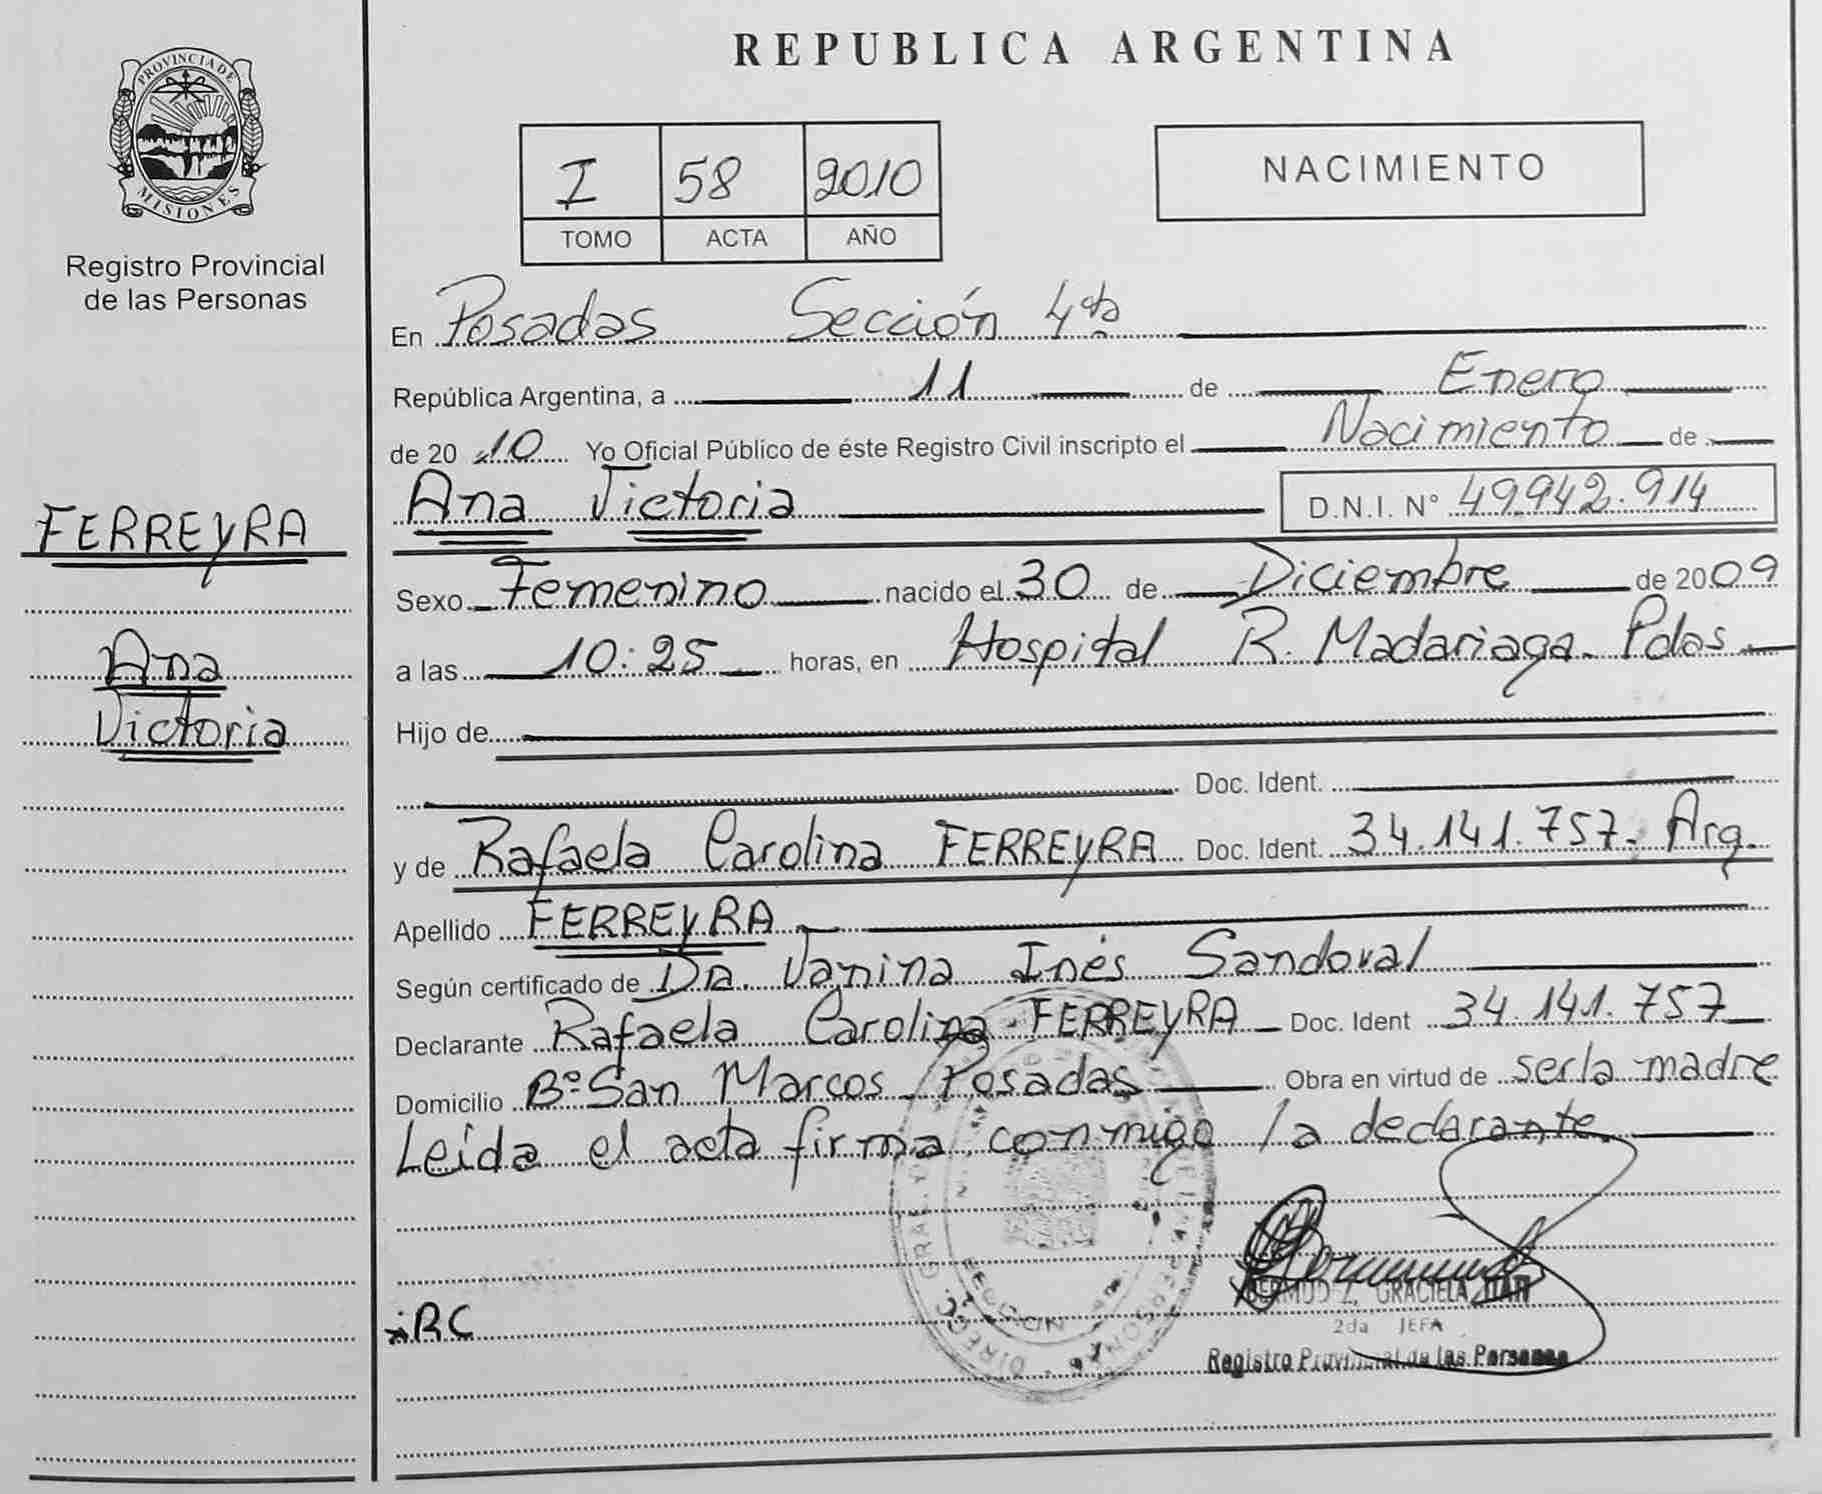 PROVINCIA DE
MISIONES
Registro Provincial
de las Personas
FERREYRA
Ana
Victoria
REPUBLICA ARGENTINA
I 58 2010
TOMO ACTA AÑO
NACIMIENTO
En Posadas Sección 4ta
República Argentina, a 11 de Enero
de 2010 Yo Oficial Público de éste Registro Civil inscripto el Nacimiento de
Ana Victoria D.N.I. N° 49.942.914
Sexo Femenino nacido el 30 de Diciembre de 2009
a las 10:25 horas, en Hospital R. Madariaga. Pdas
Hijo de
Doc. Ident.
y de Rafaela Carolina FERREYRA Doc. Ident. 34.141.757. Arg.
Apellido FERREYRA
Según certificado de Dra. Vanina Inés Sandoval
Declarante Rafaela Carolina FERREYRA Doc. Ident 34.141.757
Domicilio B° San Marcos Posadas Obra en virtud de ser la madre
Leida el acta firma conmigo la declarante.
GRACIELA
2da JEFA
Registro Provincial de las Personas
RC